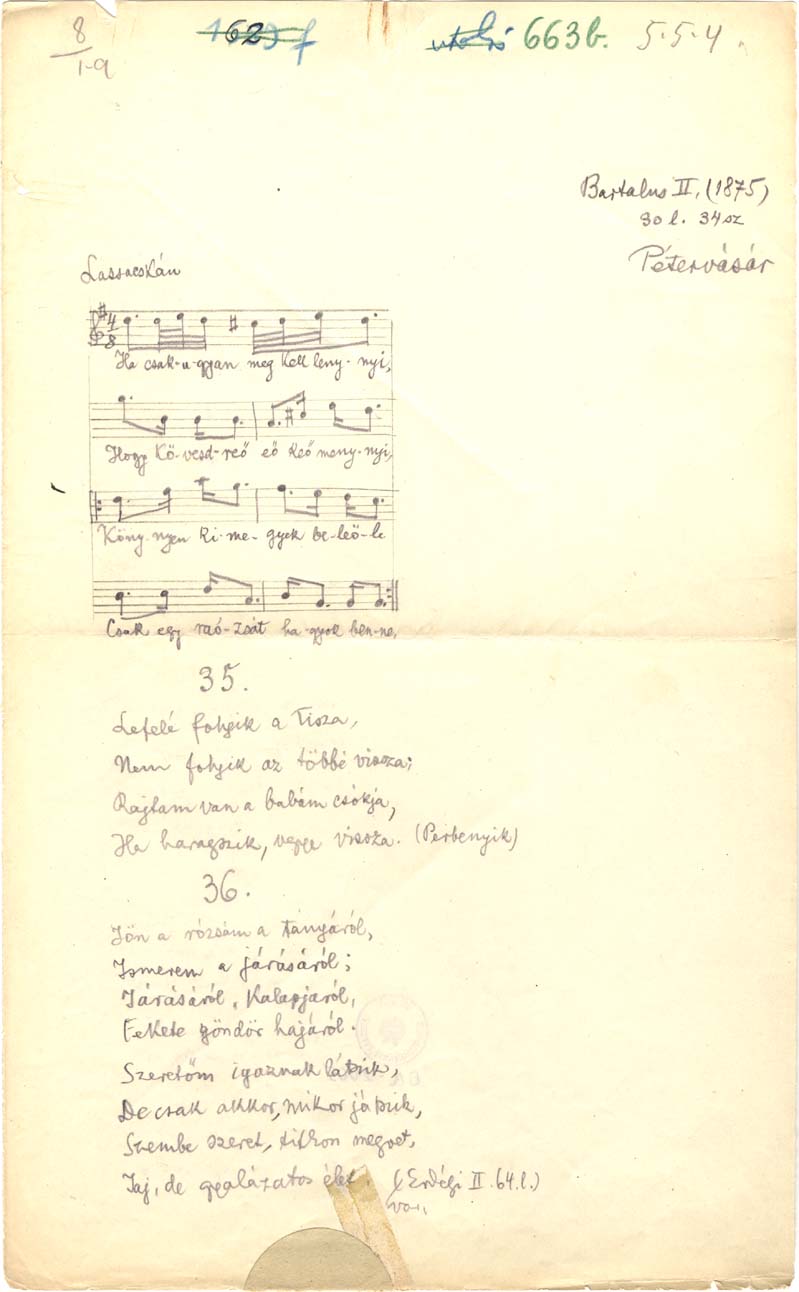 8
I-9
utolsó 663b. 5.5.4.
Bartalus II, (1875)
30 l. 34 sz
Pétervásár
Lassacskán
4
8
Ha csak-u-gyan meg kell leny-nyi,
Hogy Kö-vesd-reő eő keő meny-nyi,
Köny-nyen ki-me-gyek be-leő-le
Csak egy raó-zsát ha-gyok ben-ne.
35.
Lefelé folyik a Tisza,
Nem folyik az többé vissza;
Rajtam van a babám csókja,
Ha haragszik, vegye vissza. (Perbenyik)
36.
Jön a rózsám a tányáról,
Ismerem a járásáról;
Járásáról, Kalapjaról,
Fekete göndör hajáról.
Szeretőm igaznak látszik,
De csak akkor, mikor játszik,
Szembe szeret, titkon megvet,
Jaj, de gyalázatos élet. (Erdélyi II. 64. l.)
var.